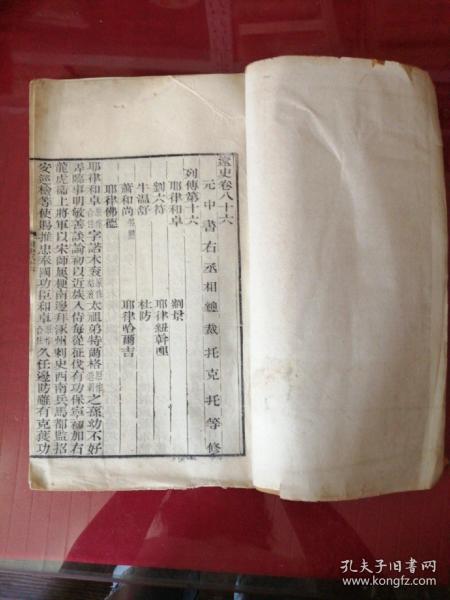 遼史卷八十六
元中書右丞相總裁托克托等修
列傳第十六
耶律和卓 劉景
劉六符 耶律紐幹哩
牛溫舒 杜防
蕭和尚 耶律哈爾吉
耶律佛德
耶律和卓 字諾木袞 太祖弟特爾格 之孫幼不好
弄臨事明敏善談論初以近族入侍每從征伐有功保寧初加右
龍虎衞上將軍以宋師屢梗南邊拜涿州刺史西南兵馬都監招
安巡檢等使賜推忠奉國功臣和卓 久任邊防雖有克獲功
孔夫子旧书网
www.kongfz.com